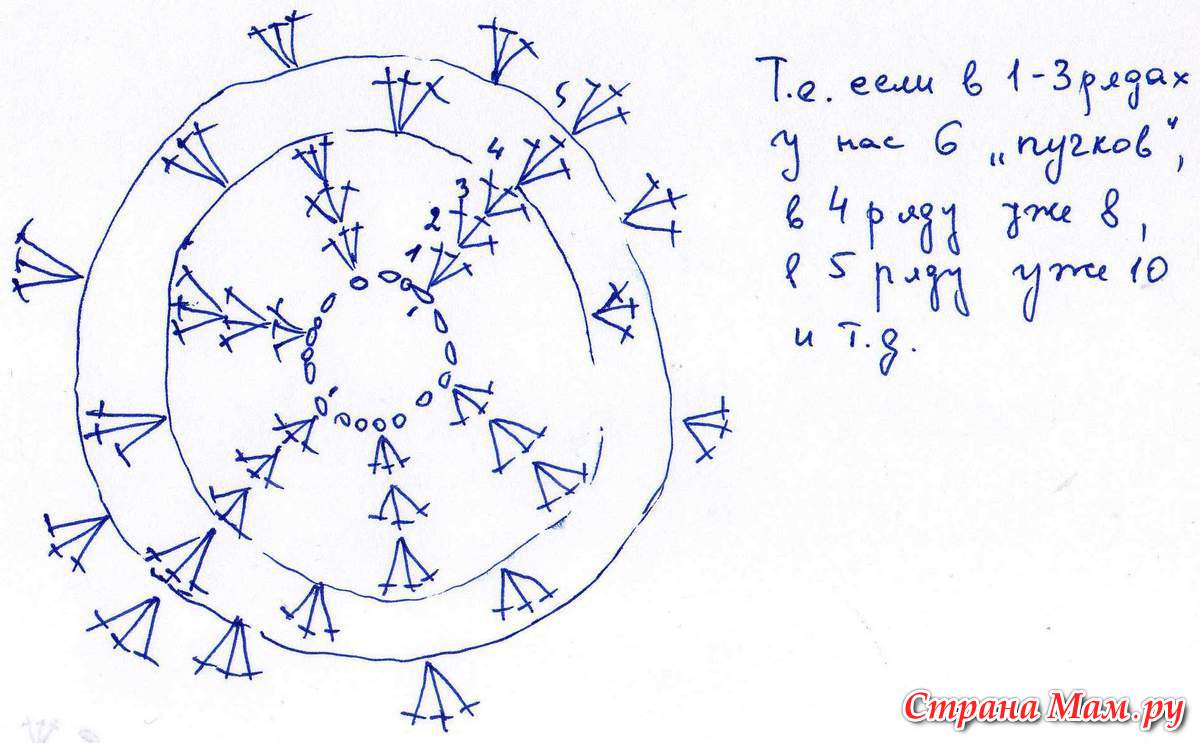 5
4
3
2
1
Т.е. если в 1-3 рядах
у нас 6 „пучков“,
в 4 ряду уже 8,
в 5 ряду уже 10
и т.д.
Страна Мам.ру